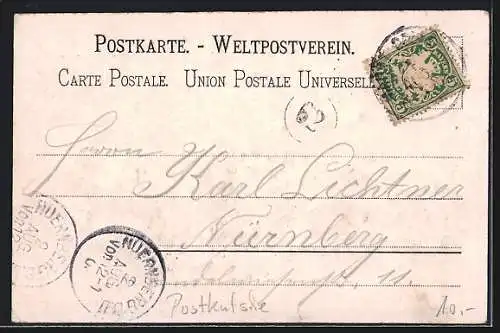 POSTKARTE. - WELTPOSTVEREIN.
CARTE POSTALE. UNION POSTALE UNIVERSELL
62
Herrn
Karl Lichtner
Nürnberg
11
NUERNBERG
AUG
NUERNBERG
AUG
Postkutsche
10.-